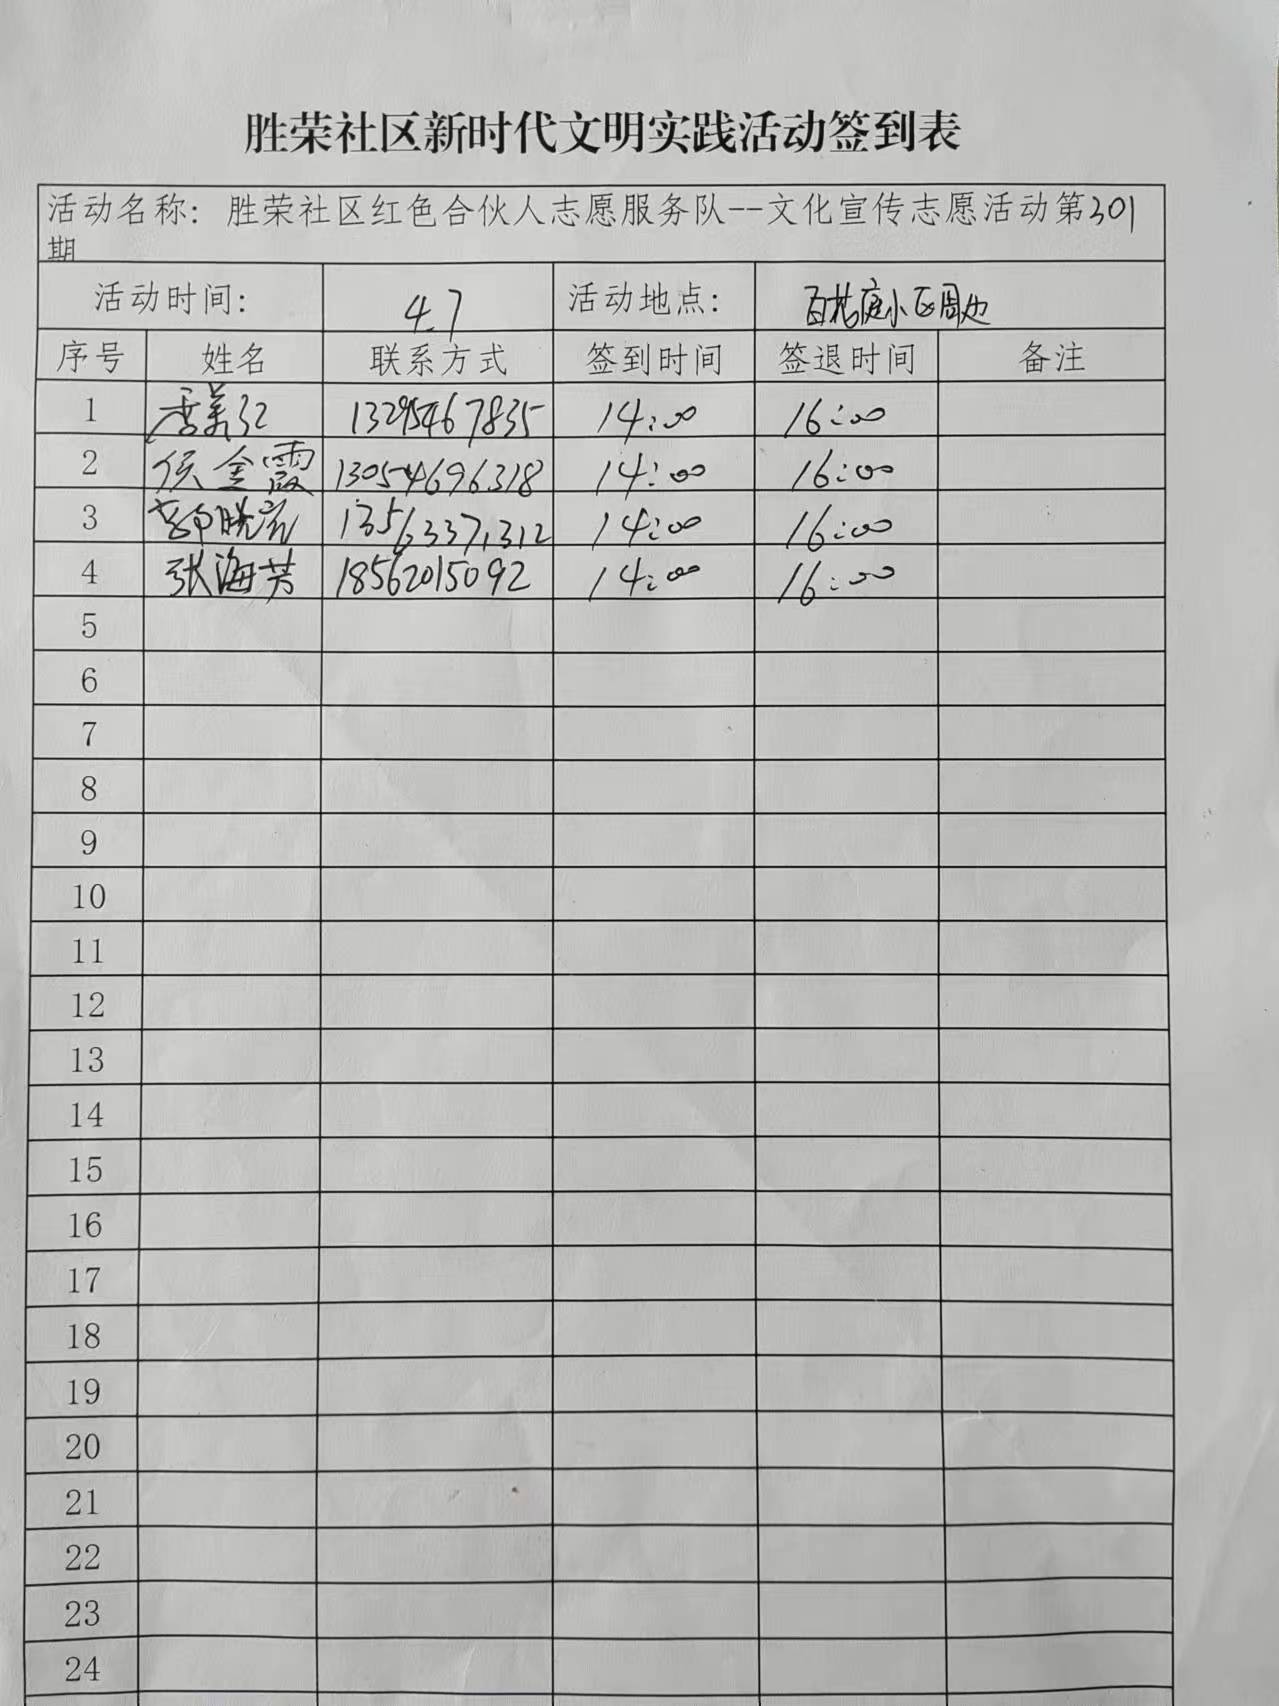 胜荣社区新时代文明实践活动签到表
活动名称：胜荣社区红色合伙人志愿服务队--文化宣传志愿活动第301
期
活动时间： 4.7 活动地点： 百桔庭小区周边
序号 姓名 联系方式 签到时间 签退时间 备注
1 李美红 13295467835 14:00 16:00
2 侯金霞 13054696318 14:00 16:00
3 13563371312 14:00 16:00
4 张海芳 18562015092 14:00 16:00
5
6
7
8
9
10
11
12
13
14
15
16
17
18
19
20
21
22
23
24